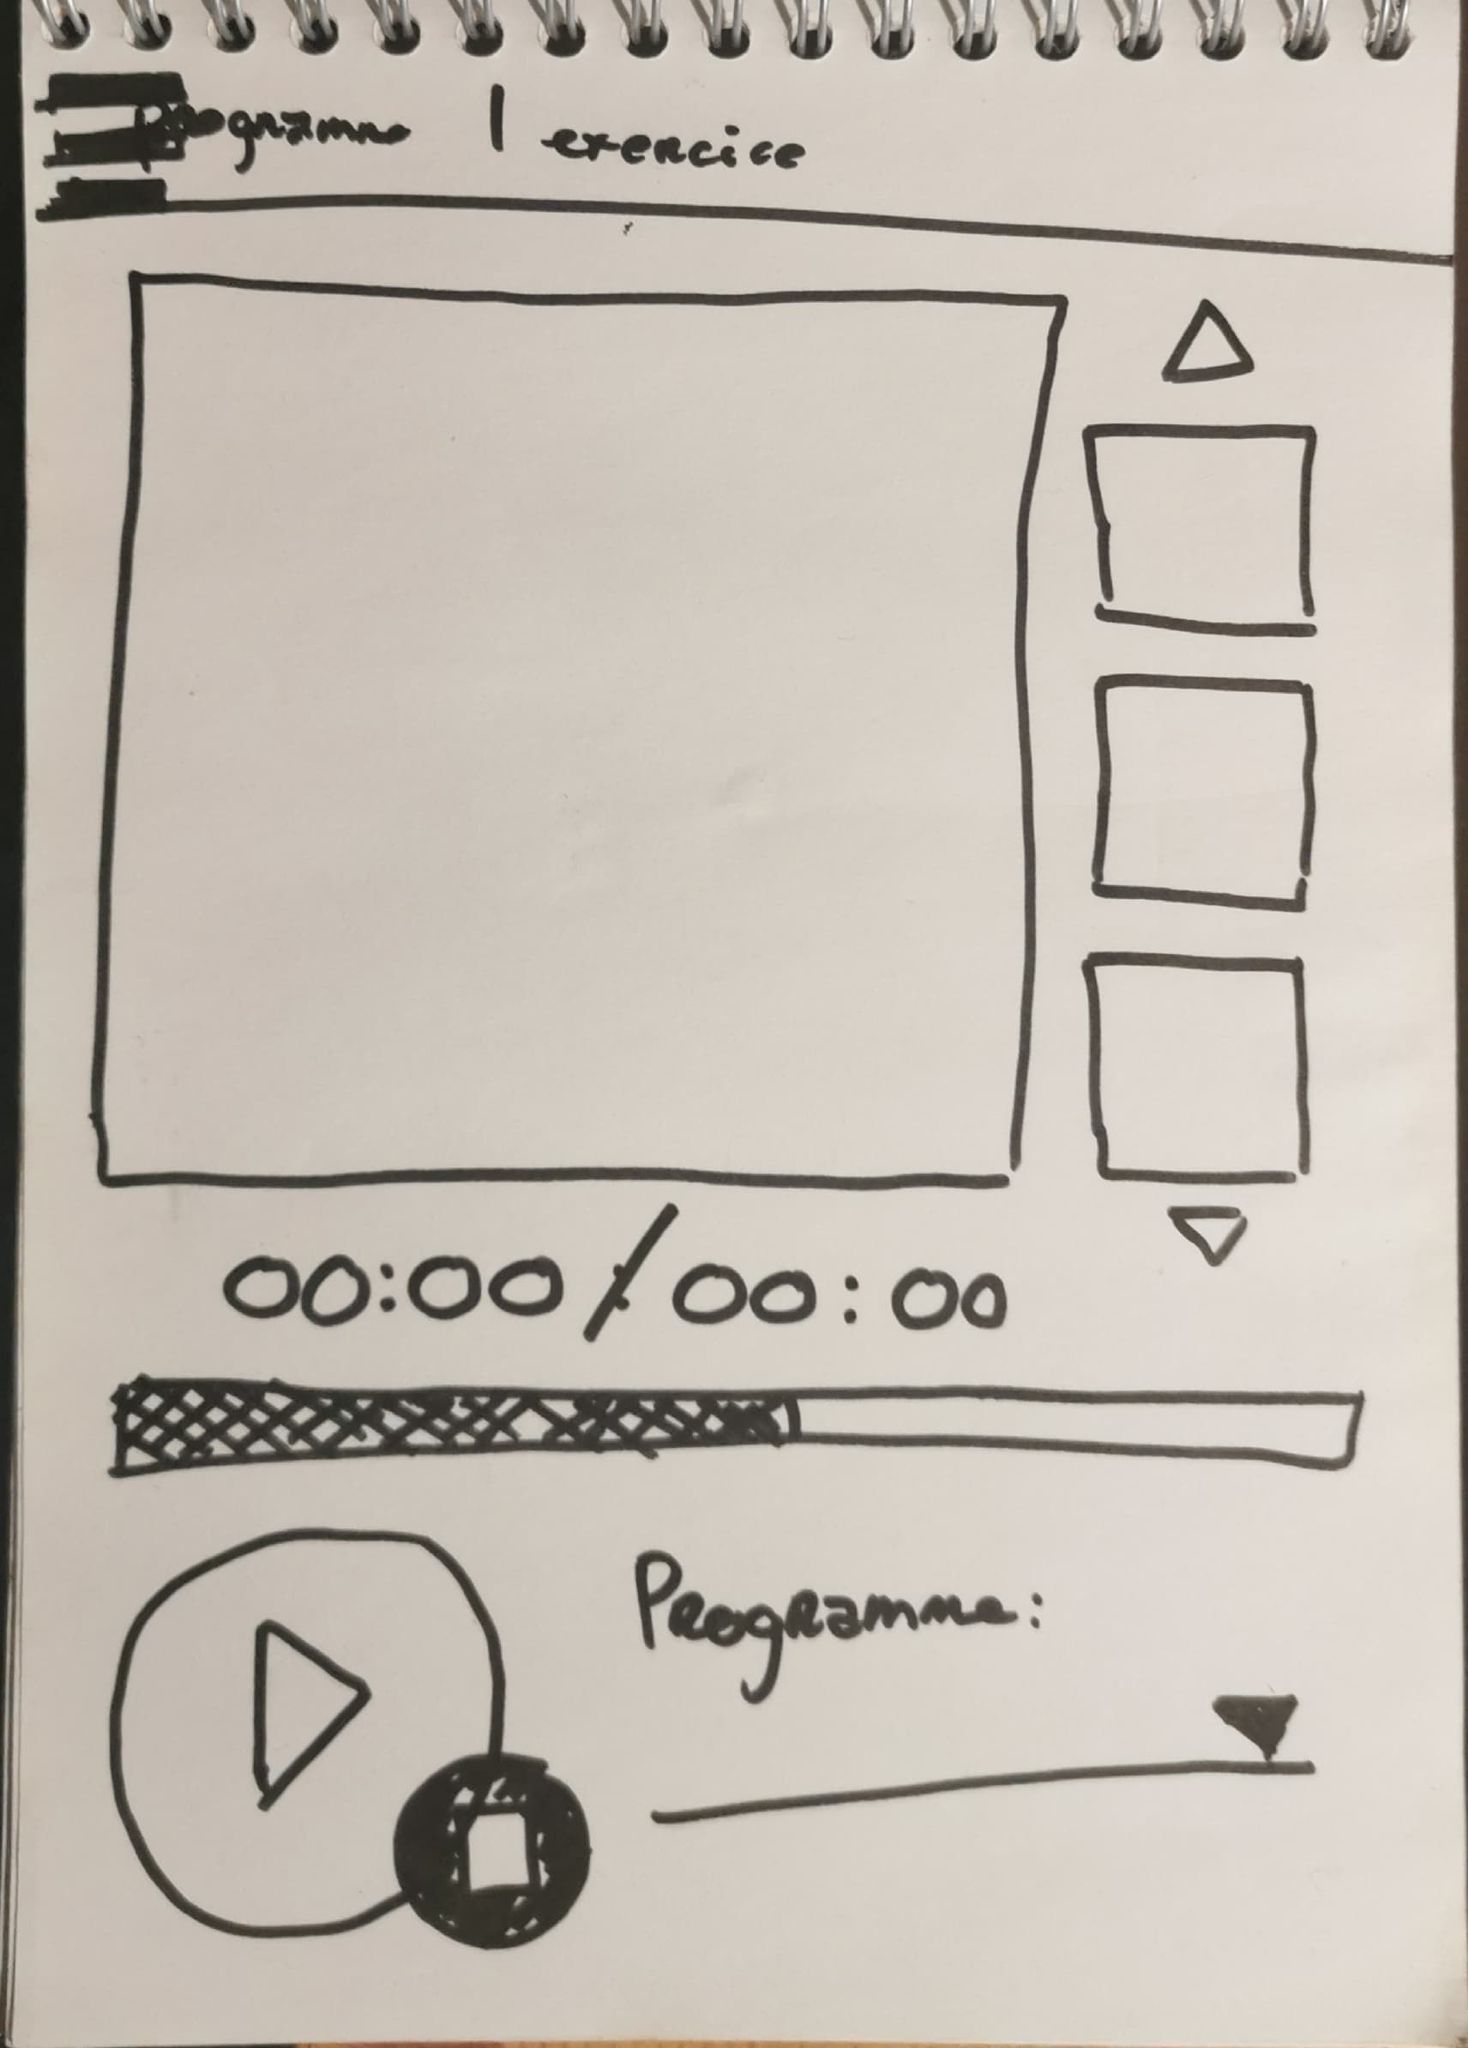 Programme | exercice
00:00 / 00:00
Programme: